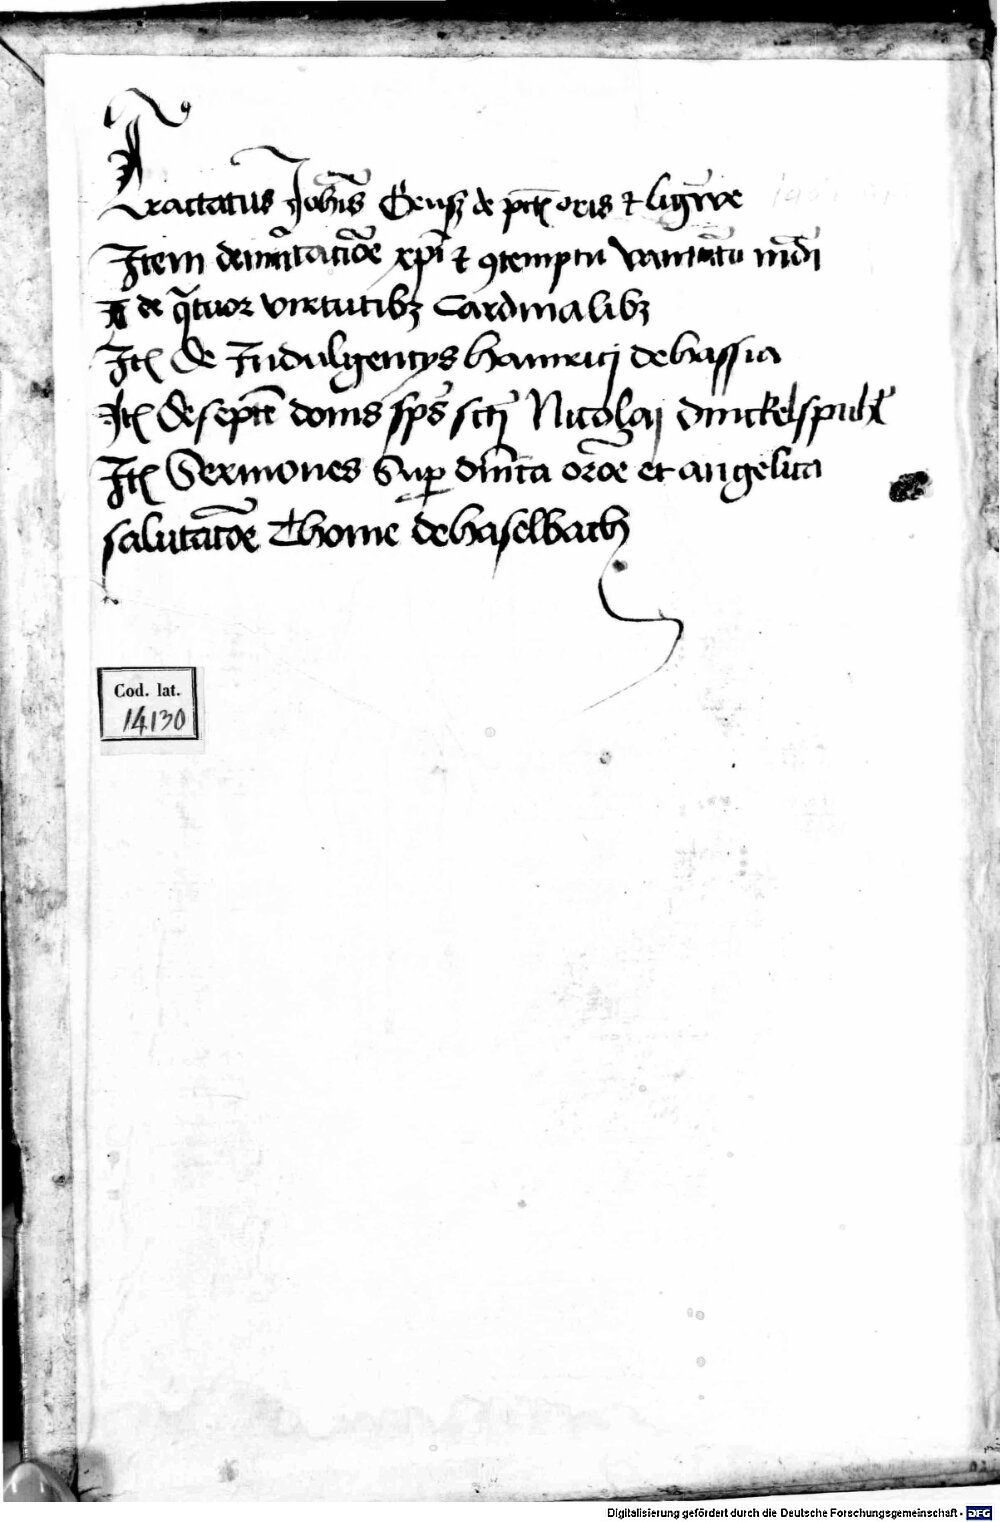 Tractatus Joh̄is Geuſz de pctīs oris et ligwe
Item de imitacōe xp̄i et ꝯtemptu vanitatū mūdi
It de qͣtuor virtutibꝫ Cardinalibꝫ
Itē De Indulgencijs hainrici de hassia
Itē De septē donis sp̄s sctī Nicolaj dinckelspuhl
Itē Sermones Suꝑ dn̄ica orōe et angelica
salutacōe Thome de haselbach
Cod. lat.
14130
Digitalisierung gefördert durch die Deutsche Forschungsgemeinschaft - DFG